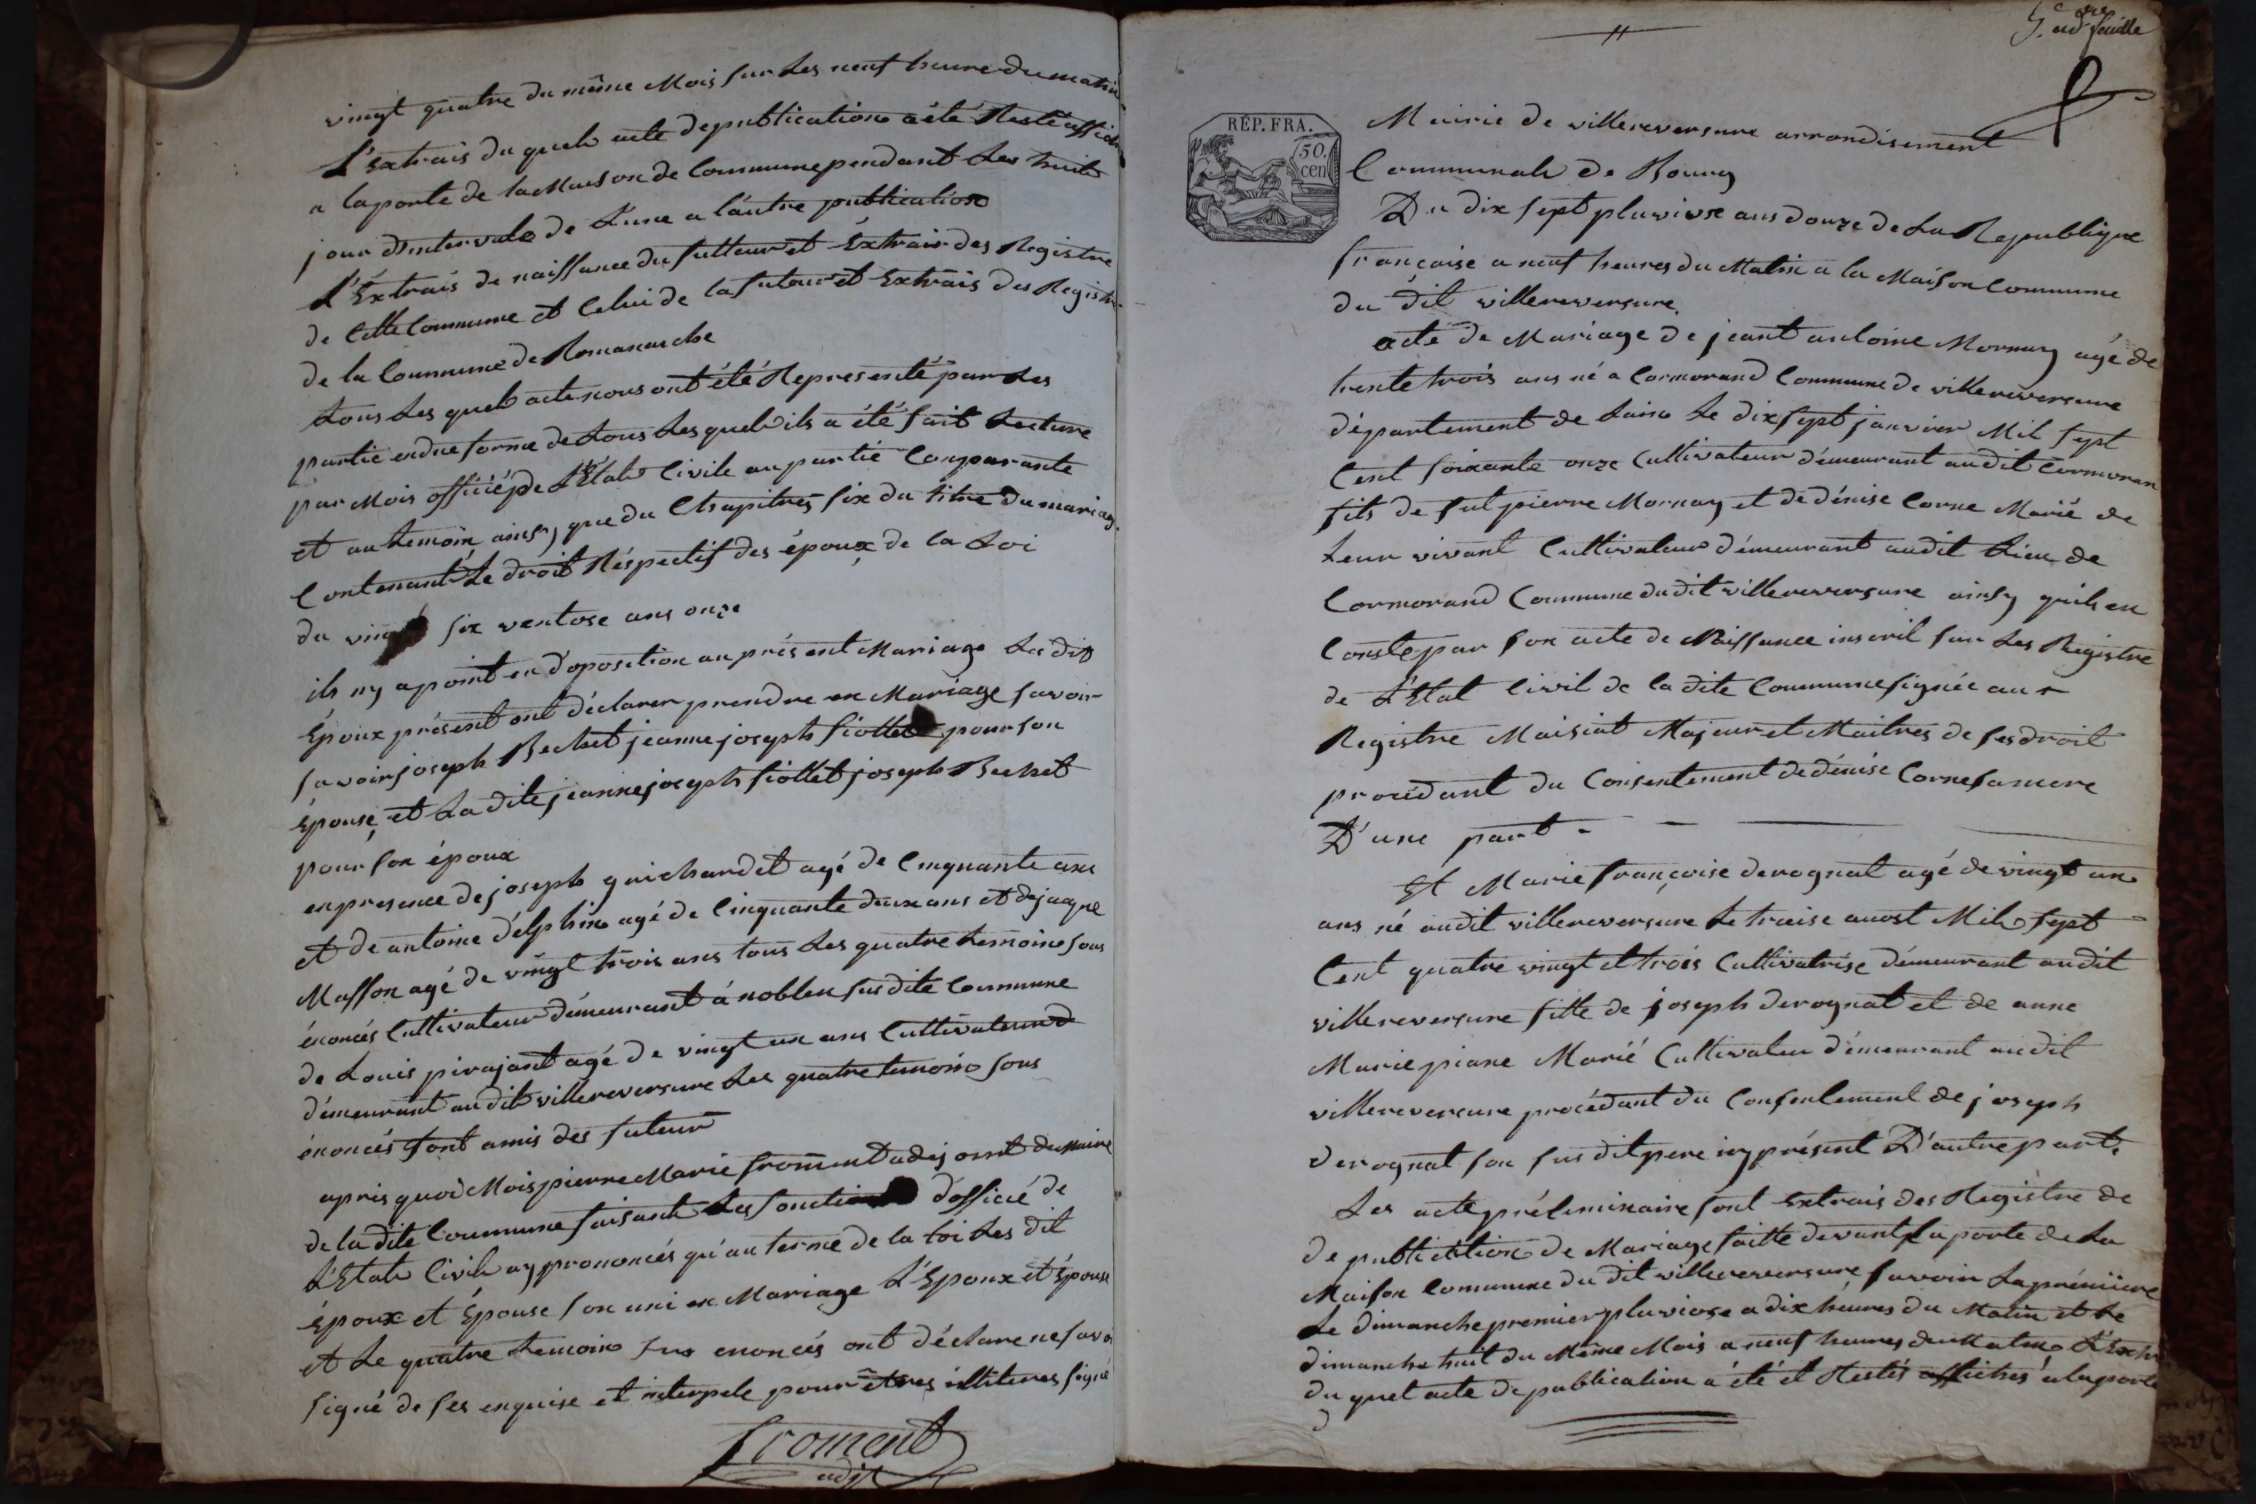 vingt quatre du même Mois sur Les neuf heure du matin
L'Extrais du quel acte de publication a été Resté affiché
a la porte de la Maison de Commune pendant Les huit
jour d'intervale de Lune a lautre publication
L'Extrais de naissance du futteur et Extrais des Registre
de Cette Commune et Celui de la futeur et Extrais des Registre
de la Commune de Romanaiche
tous Les quels acte nous ont été Represeenté par Les
partie en due forme de tous Les quels ils a été fait Lecture
par Mois officié de L'Etat Civile au partié Comparante
et au temoin ainsy que du Chapitres six du titre du mariage
Contenant Le droit Réspectif des époux de la Loi
du vingt six ventose ans onze
ils ny a point eu d'oposition au présent Mariage Les dit
Époux présent ont déclarer prendre en Mariage savoir
savoir joseph Bechet jeanne joseph fiollet pour son
épouse et La dite jeanne joseph fiollet joseph Bechet
pour son époux
en presence de joseph guichardet agé de Cinquante ans
et de antoine délphin agé de Cinquante deux ans et de jaque
Masson agé de vingt trois ans tous Les quatre temoine sous
énoncés Cultivateur démeurant á noblen susdite Commune
de Louis pirajant agé de vingt un ans Cultivateur d
démeurant au dit villereversure Les quatre temoin sous
énoncés sont amis des futeur
apris quoi Mois pierre Marie froment adejoint du Maire
de la dite Commune faisant Les fonction d'officié de
L'Etat Civil ay prononcés qu'au terme de la toi Les dit
époux et Épouse son uni en Mariage L'Epoux et Épouse
et Le quatre temoin sus enoncés ont déclare ne savoir
signé de ses enquise et interpele pour êtres illiteres signé
froment
adjt
5.e et d.re feuille
RÉP. FRA.
50.
cen
Mairie de villereversure arrondisement
Communale de Bourg
Du dix sept pluviose ans douze de La Republique
française a neuf heures du Matin a la Maison Commune
du dit villereversure
acte de Mariage de jeant antoine Mornay agé de
trente trois ans né a Cormorand Commune de villereversure
département de Lain Le dix sept janvier Mil sept
Cent soixante onze Cultivateur démeurant au dit Cormoran
fils de fut pierre Mornay et de dénise Corne Marié de
Leur vivant Cultivateur démeurant audit Lieu de
Cormorand Commune dudit villereversure ainsy quil en
Conste par son acte de Naissance inscril sur Les Registre
de L'Etat Civil de la dite Commune signée au
Registre Maisiat Majeur et Maitres de ses droit
procédant du Consentement de dénise Corne sa mere
D'une part
Et Marie françoise derognat agé de vingt un
ans né au dit villereversure Le traise auost Mil sept
Cent quatre vingt et trois Cultivatrise démeurant audit
villereversure fille de joseph derognat et de anne
Marie piane Marié Cultivateur démeurant audit
villereversure procédant du Consentement de joseph
derognat son sus dit pere icy présent D'autre part.
Les acte préliminaire sont Extrais des Registre de
de publiction de Mariage faitte devant La porte de La
Maison Commune du dit villereversure savoir La prémiere
Le dimanche premier pluviose a dix heures du Matin et Le
dimanche huit du Même Mois a neuf heures du Matin L'Extr
du quel acte de publication a été et Restés affichés a la porte